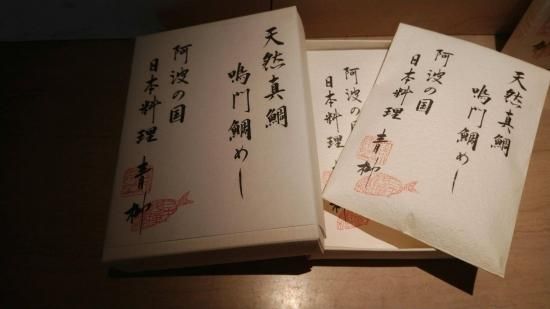 天然真鯛
鳴門鯛めし
阿波の国
日本料理 青柳
天然真鯛
鳴門鯛めし
阿波の国
日本料理 青柳
阿波の国
日本料理 青柳